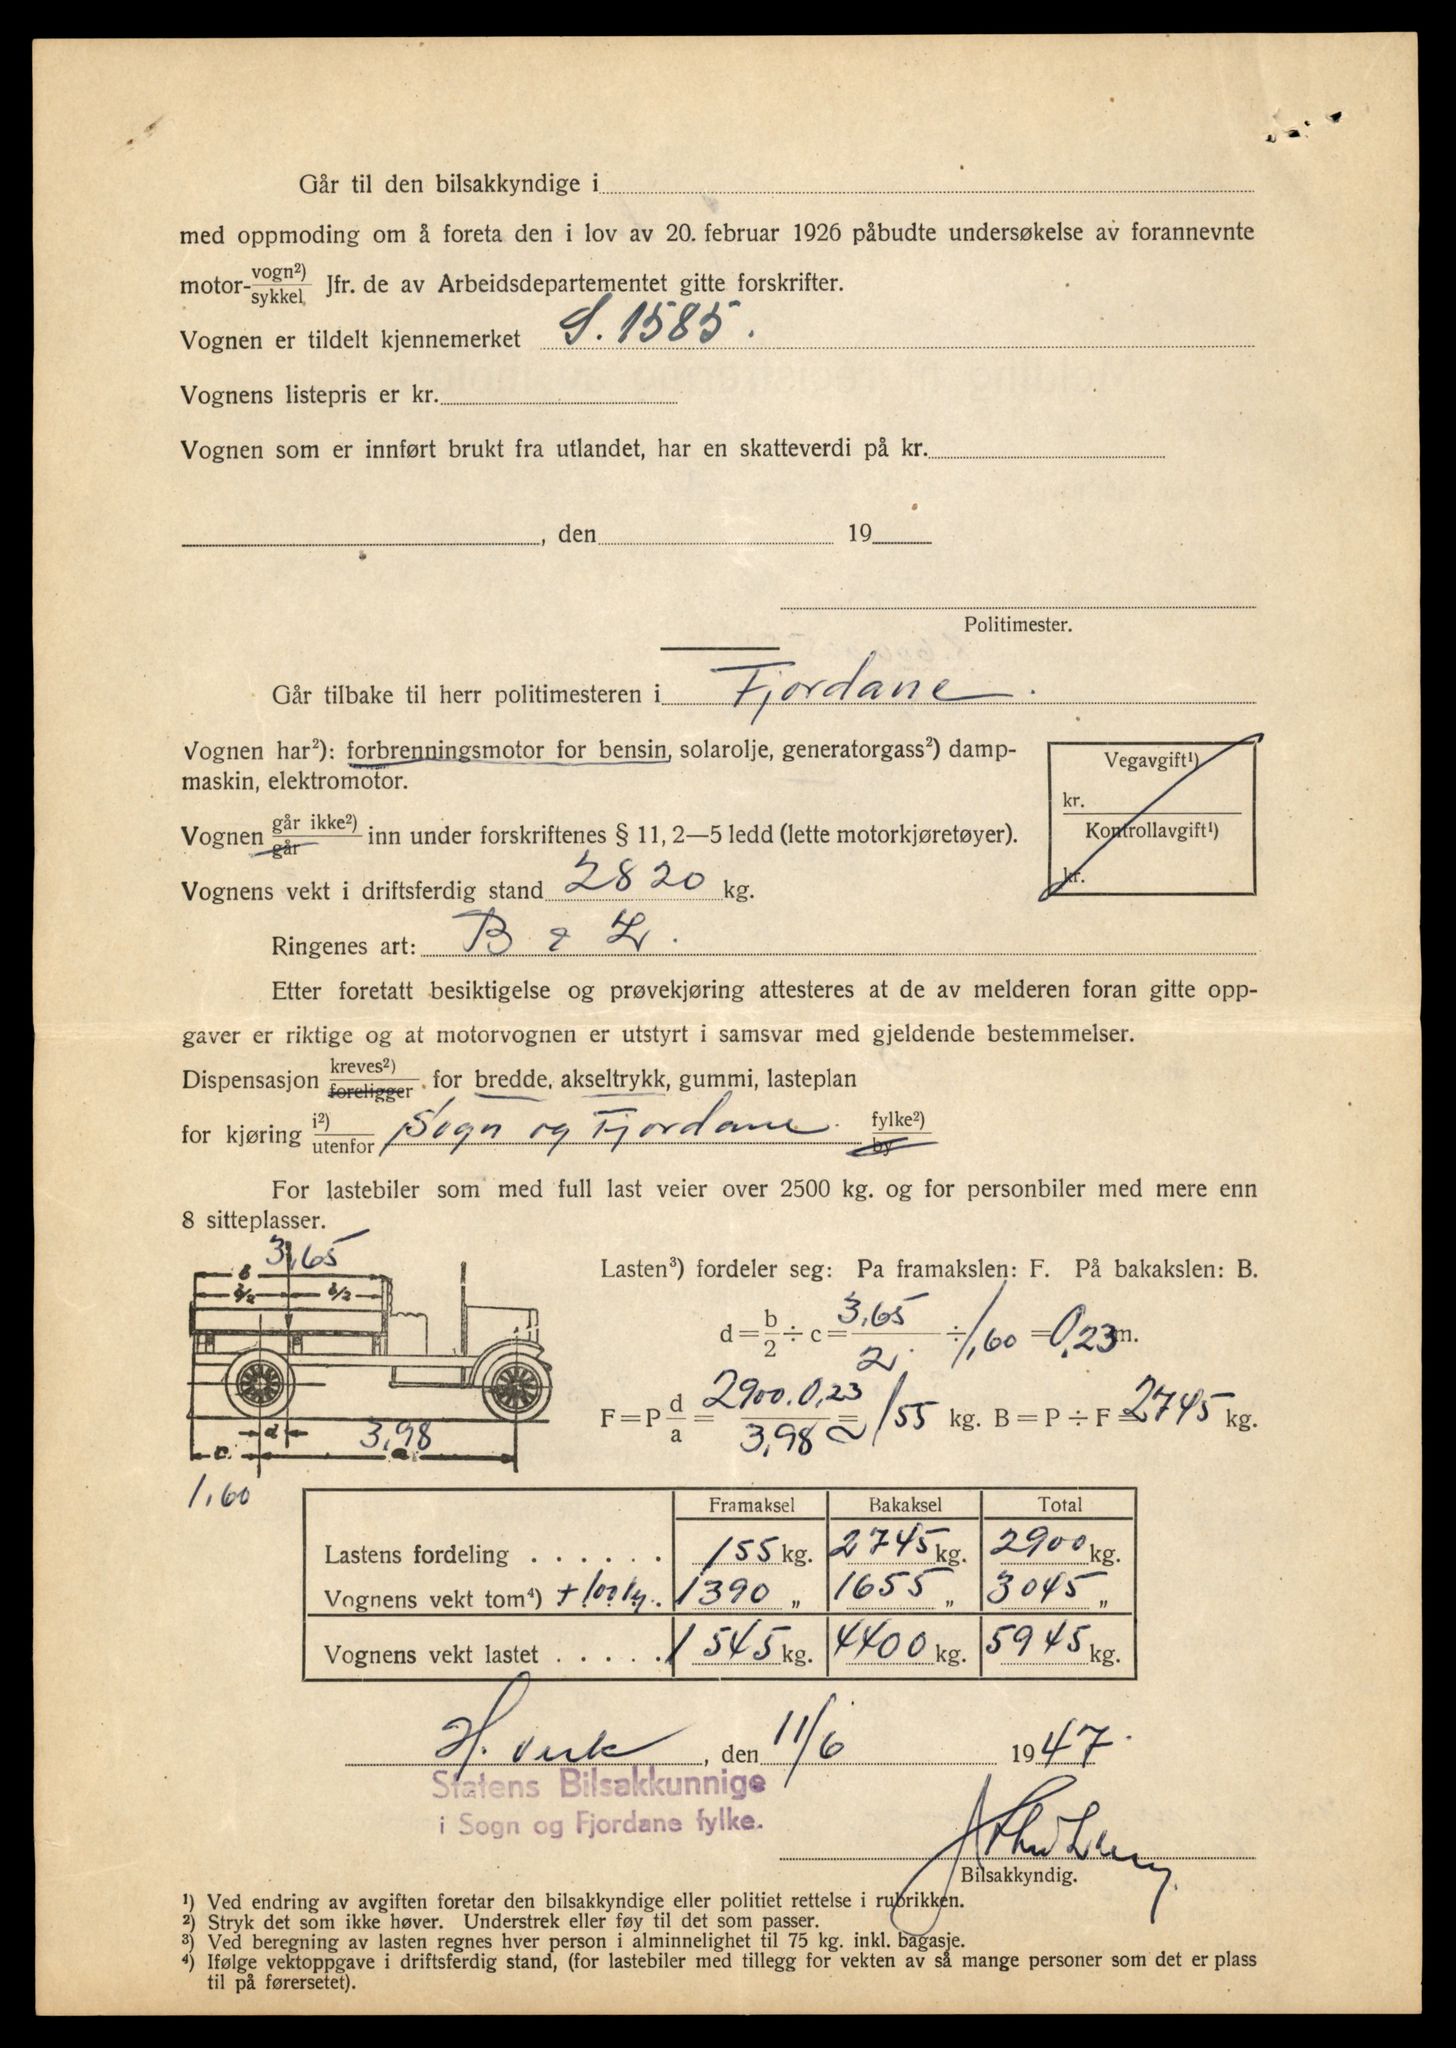 Går til den bilsakkyndige i
med oppmoding om å foreta den i lov av 20. februar 1926 påbudte undersøkelse av forannevnte
motor-vogn²)/sykkel Jfr. de av Arbeidsdepartementet gitte forskrifter.
Vognen er tildelt kjennemerket S. 1585.
Vognens listepris er kr.
Vognen som er innført brukt fra utlandet, har en skatteverdi på kr.
, den 19
Politimester.
Går tilbake til herr politimesteren i Fjordane.
Vognen har²): forbrenningsmotor for bensin, solarolje, generatorgass²) damp-
maskin, elektromotor.
Vegavgift¹)
kr.
Kontrollavgift¹)
kr.
Vognen går ikke²)/går inn under forskriftenes § 11, 2—5 ledd (lette motorkjøretøyer).
Vognens vekt i driftsferdig stand 2820 kg.
Ringenes art: B &
Etter foretatt besiktigelse og prøvekjøring attesteres at de av melderen foran gitte opp-
gaver er riktige og at motorvognen er utstyrt i samsvar med gjeldende bestemmelser.
Dispensasjon kreves²)/foreligger for bredde, akseltrykk, gummi, lasteplan
for kjøring i²)/utenfor Sogn og Fjordane fylke²)/by
For lastebiler som med full last veier over 2500 kg. og for personbiler med mere enn
8 sitteplasser.
3,65
b
b/2 b/2
d
c. 3,98 a.
1,60
Lasten³) fordeler seg: Pa framakslen: F. På bakakslen: B.
d = b/2 ÷ c = 3,65/2 ÷ 1,60 = 0,23 m.
F = P d/a = 2900. 0,23/3,98 = 155 kg. B = P ÷ F = 2745 kg.
Framaksel Bakaksel Total
Lastens fordeling . . . . . . 155 kg. 2745 kg. 2900 kg.
Vognens vekt tom⁴) + 100 kg. 1390 „ 1655 „ 3045 „
Vognens vekt lastet . . . . . 1545 kg. 4400 kg. 5945 kg.
, den 11/6 1947.
Statens Bilsakkunnige
i Sogn og Fjordane fylke.
Bilsakkyndig.
¹) Ved endring av avgiften foretar den bilsakkyndige eller politiet rettelse i rubrikken.
²) Stryk det som ikke høver. Understrek eller føy til det som passer.
³) Ved beregning av lasten regnes hver person i alminnelighet til 75 kg. inkl. bagasje.
⁴) Ifølge vektoppgave i driftsferdig stand, (for lastebiler med tillegg for vekten av så mange personer som det er plass
til på førersetet).